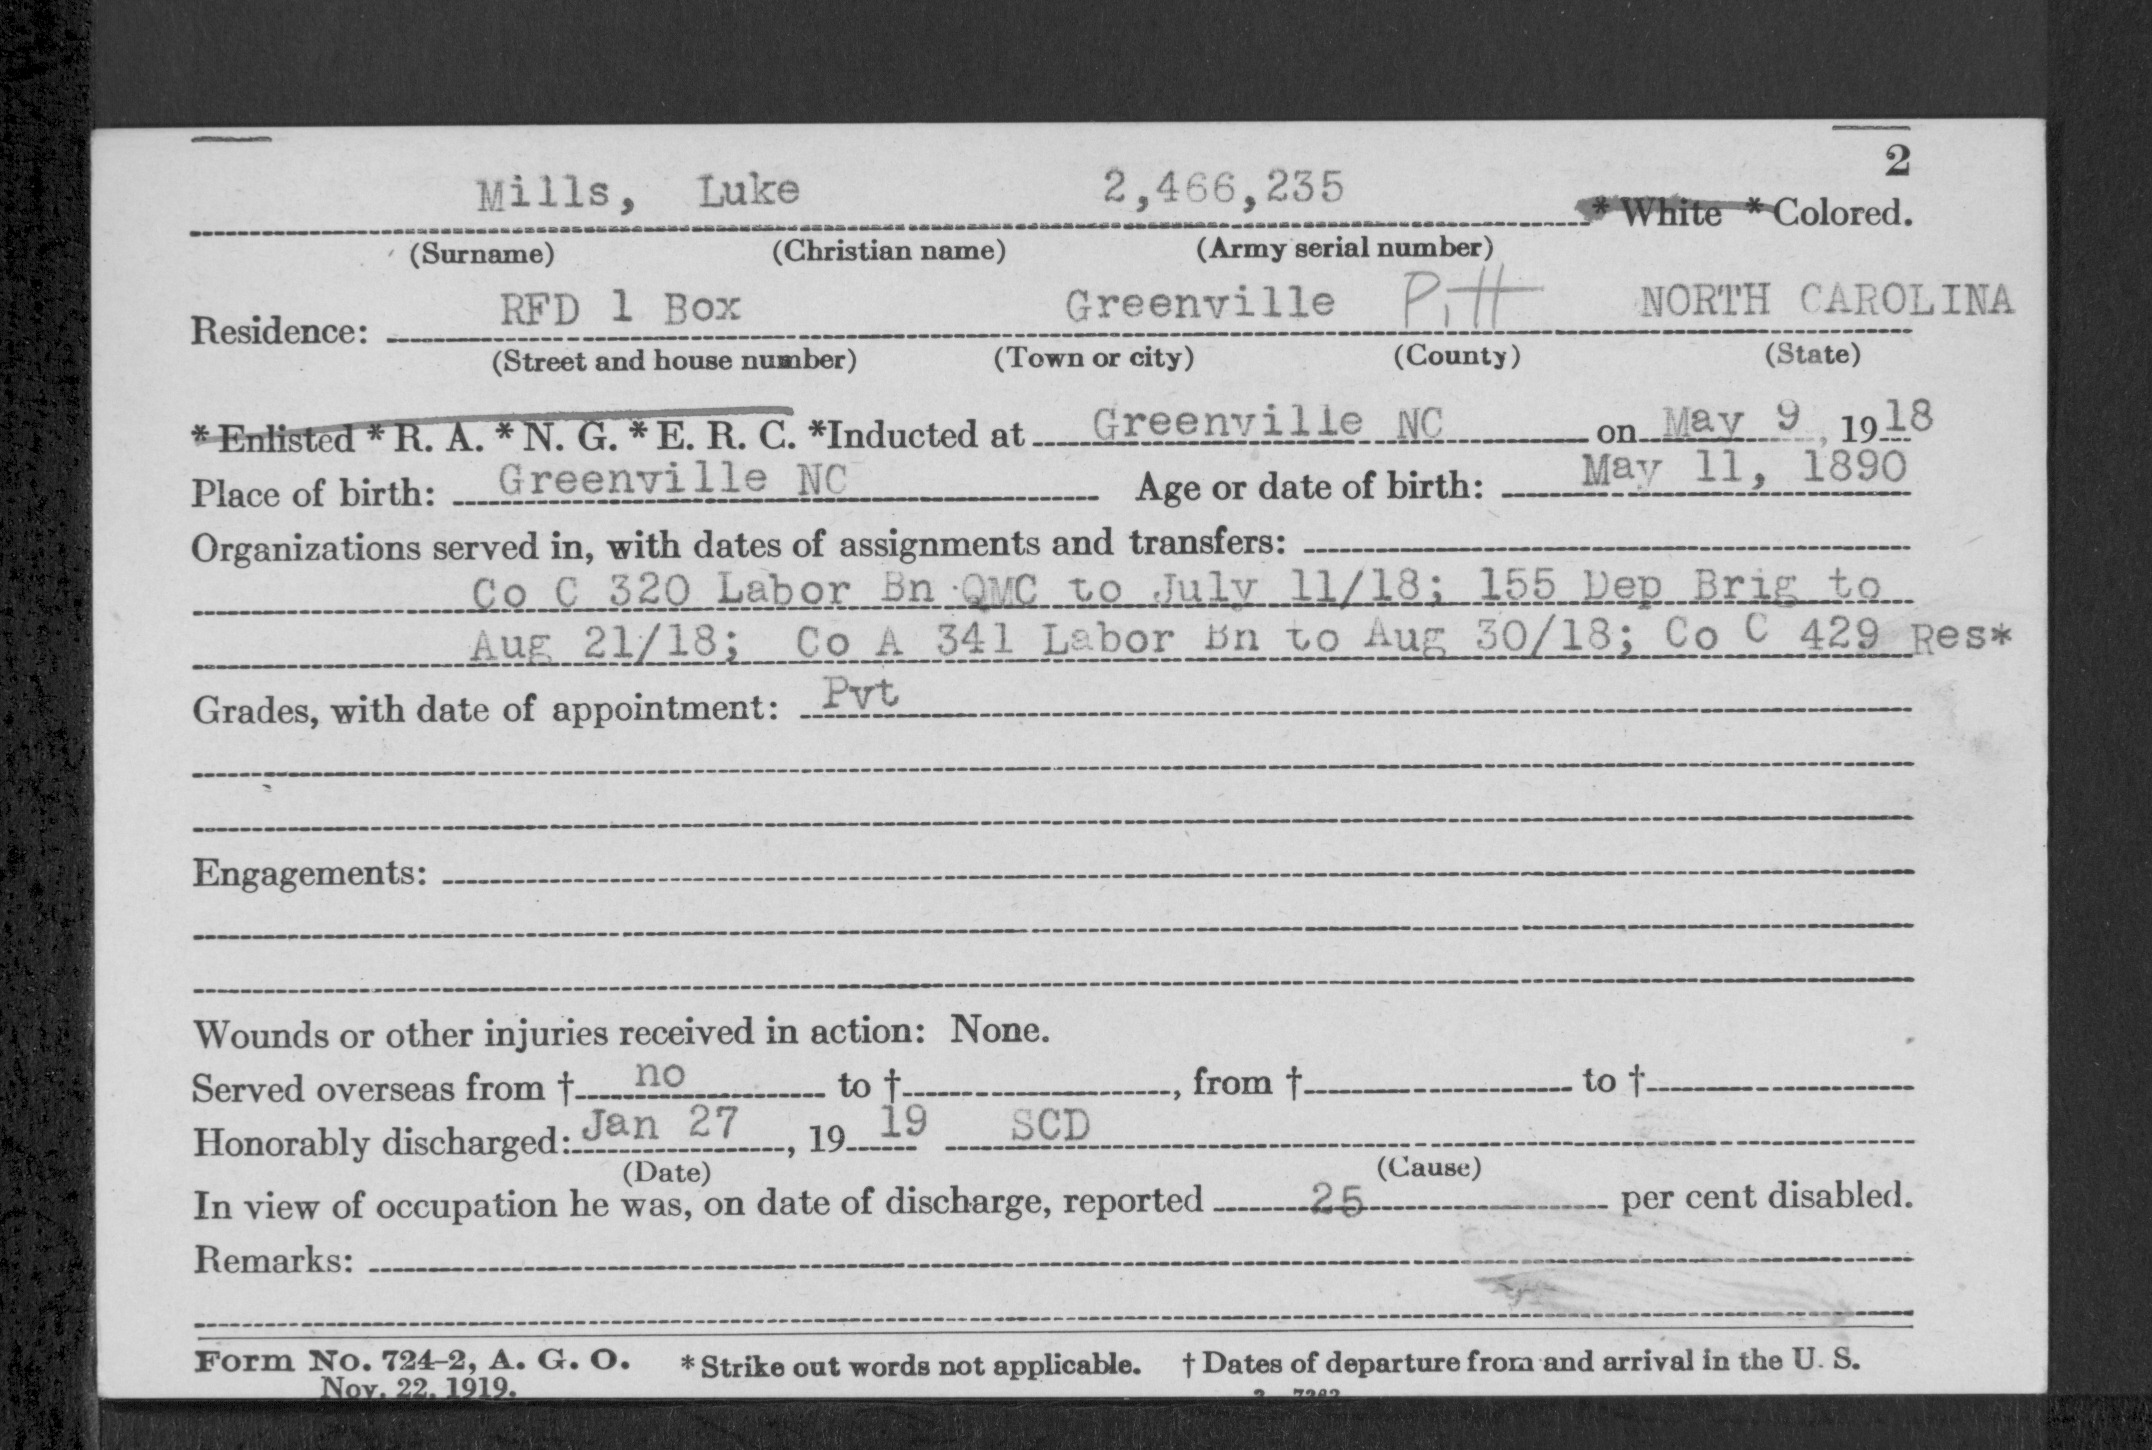 2
Mills, Luke 2,466,235 * White * Colored.
(Surname) (Christian name) (Army serial number)
Residence: RFD 1 Box Greenville Pitt NORTH CAROLINA
(Street and house number) (Town or city) (County) (State)
* Enlisted * R. A. * N. G. * E. R. C. *Inducted at Greenville NC on May 9, 1918
Place of birth: Greenville NC Age or date of birth: May 11, 1890
Organizations served in, with dates of assignments and transfers:
Co C 320 Labor Bn QMC to July 11/18; 155 Dep Brig to
Aug 21/18; Co A 341 Labor Bn to Aug 30/18; Co C 429 Res*
Grades, with date of appointment: Pvt
Engagements:
Wounds or other injuries received in action: None.
Served overseas from † no to †, from † to †
Honorably discharged: Jan 27, 19 19 SCD
(Date) (Cause)
In view of occupation he was, on date of discharge, reported 25 per cent disabled.
Remarks:
Form No. 724-2, A. G. O. * Strike out words not applicable. † Dates of departure from and arrival in the U. S.
Nov. 22, 1919.